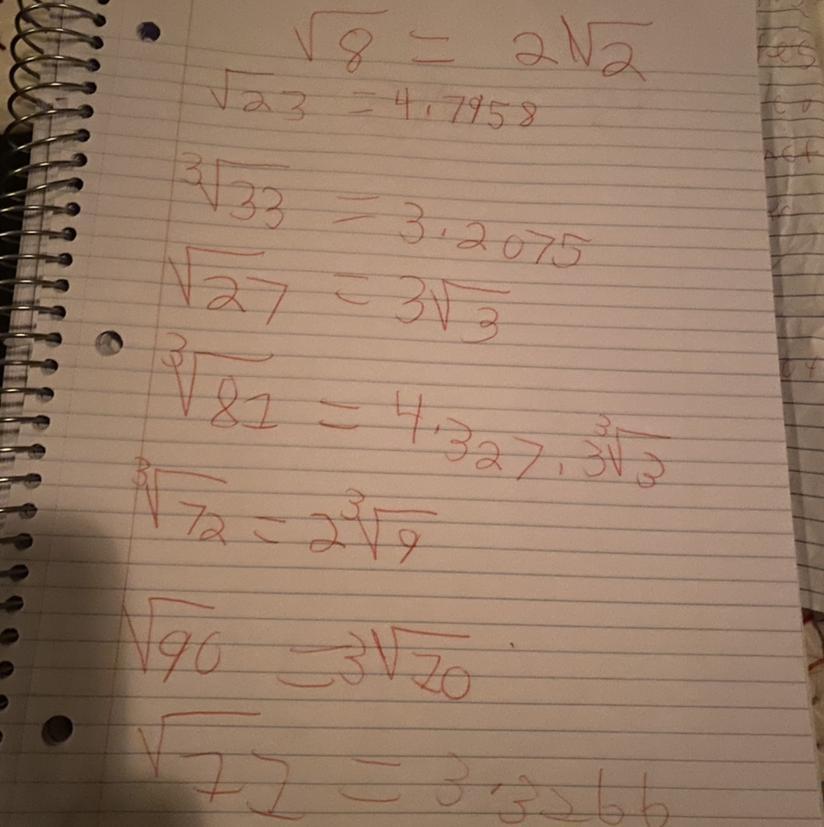 √8 = 2√2
√23 = 4.7958
∛33 = 3.2075
√27 = 3√3
∛81 = 4.327, 3∛3
∛72 = 2∛9
√90 = 3√10
√11 = 3.3166